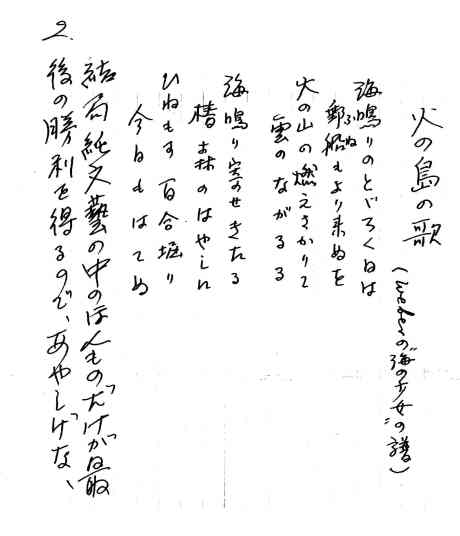 火の島の歌
(Weberの"海の少女"の譜)
海鳴りのとゞろく日は
郵船もより来ぬを
ふね
火の山の燃えさかりて
雲のながるる
海鳴り寄せきたる
椿森のはやしに
ひねもす百合堀り
今日もはてぬ
結局純文藝の中のほんものだけが最
後の勝利を得るので、あやしげな、
2.